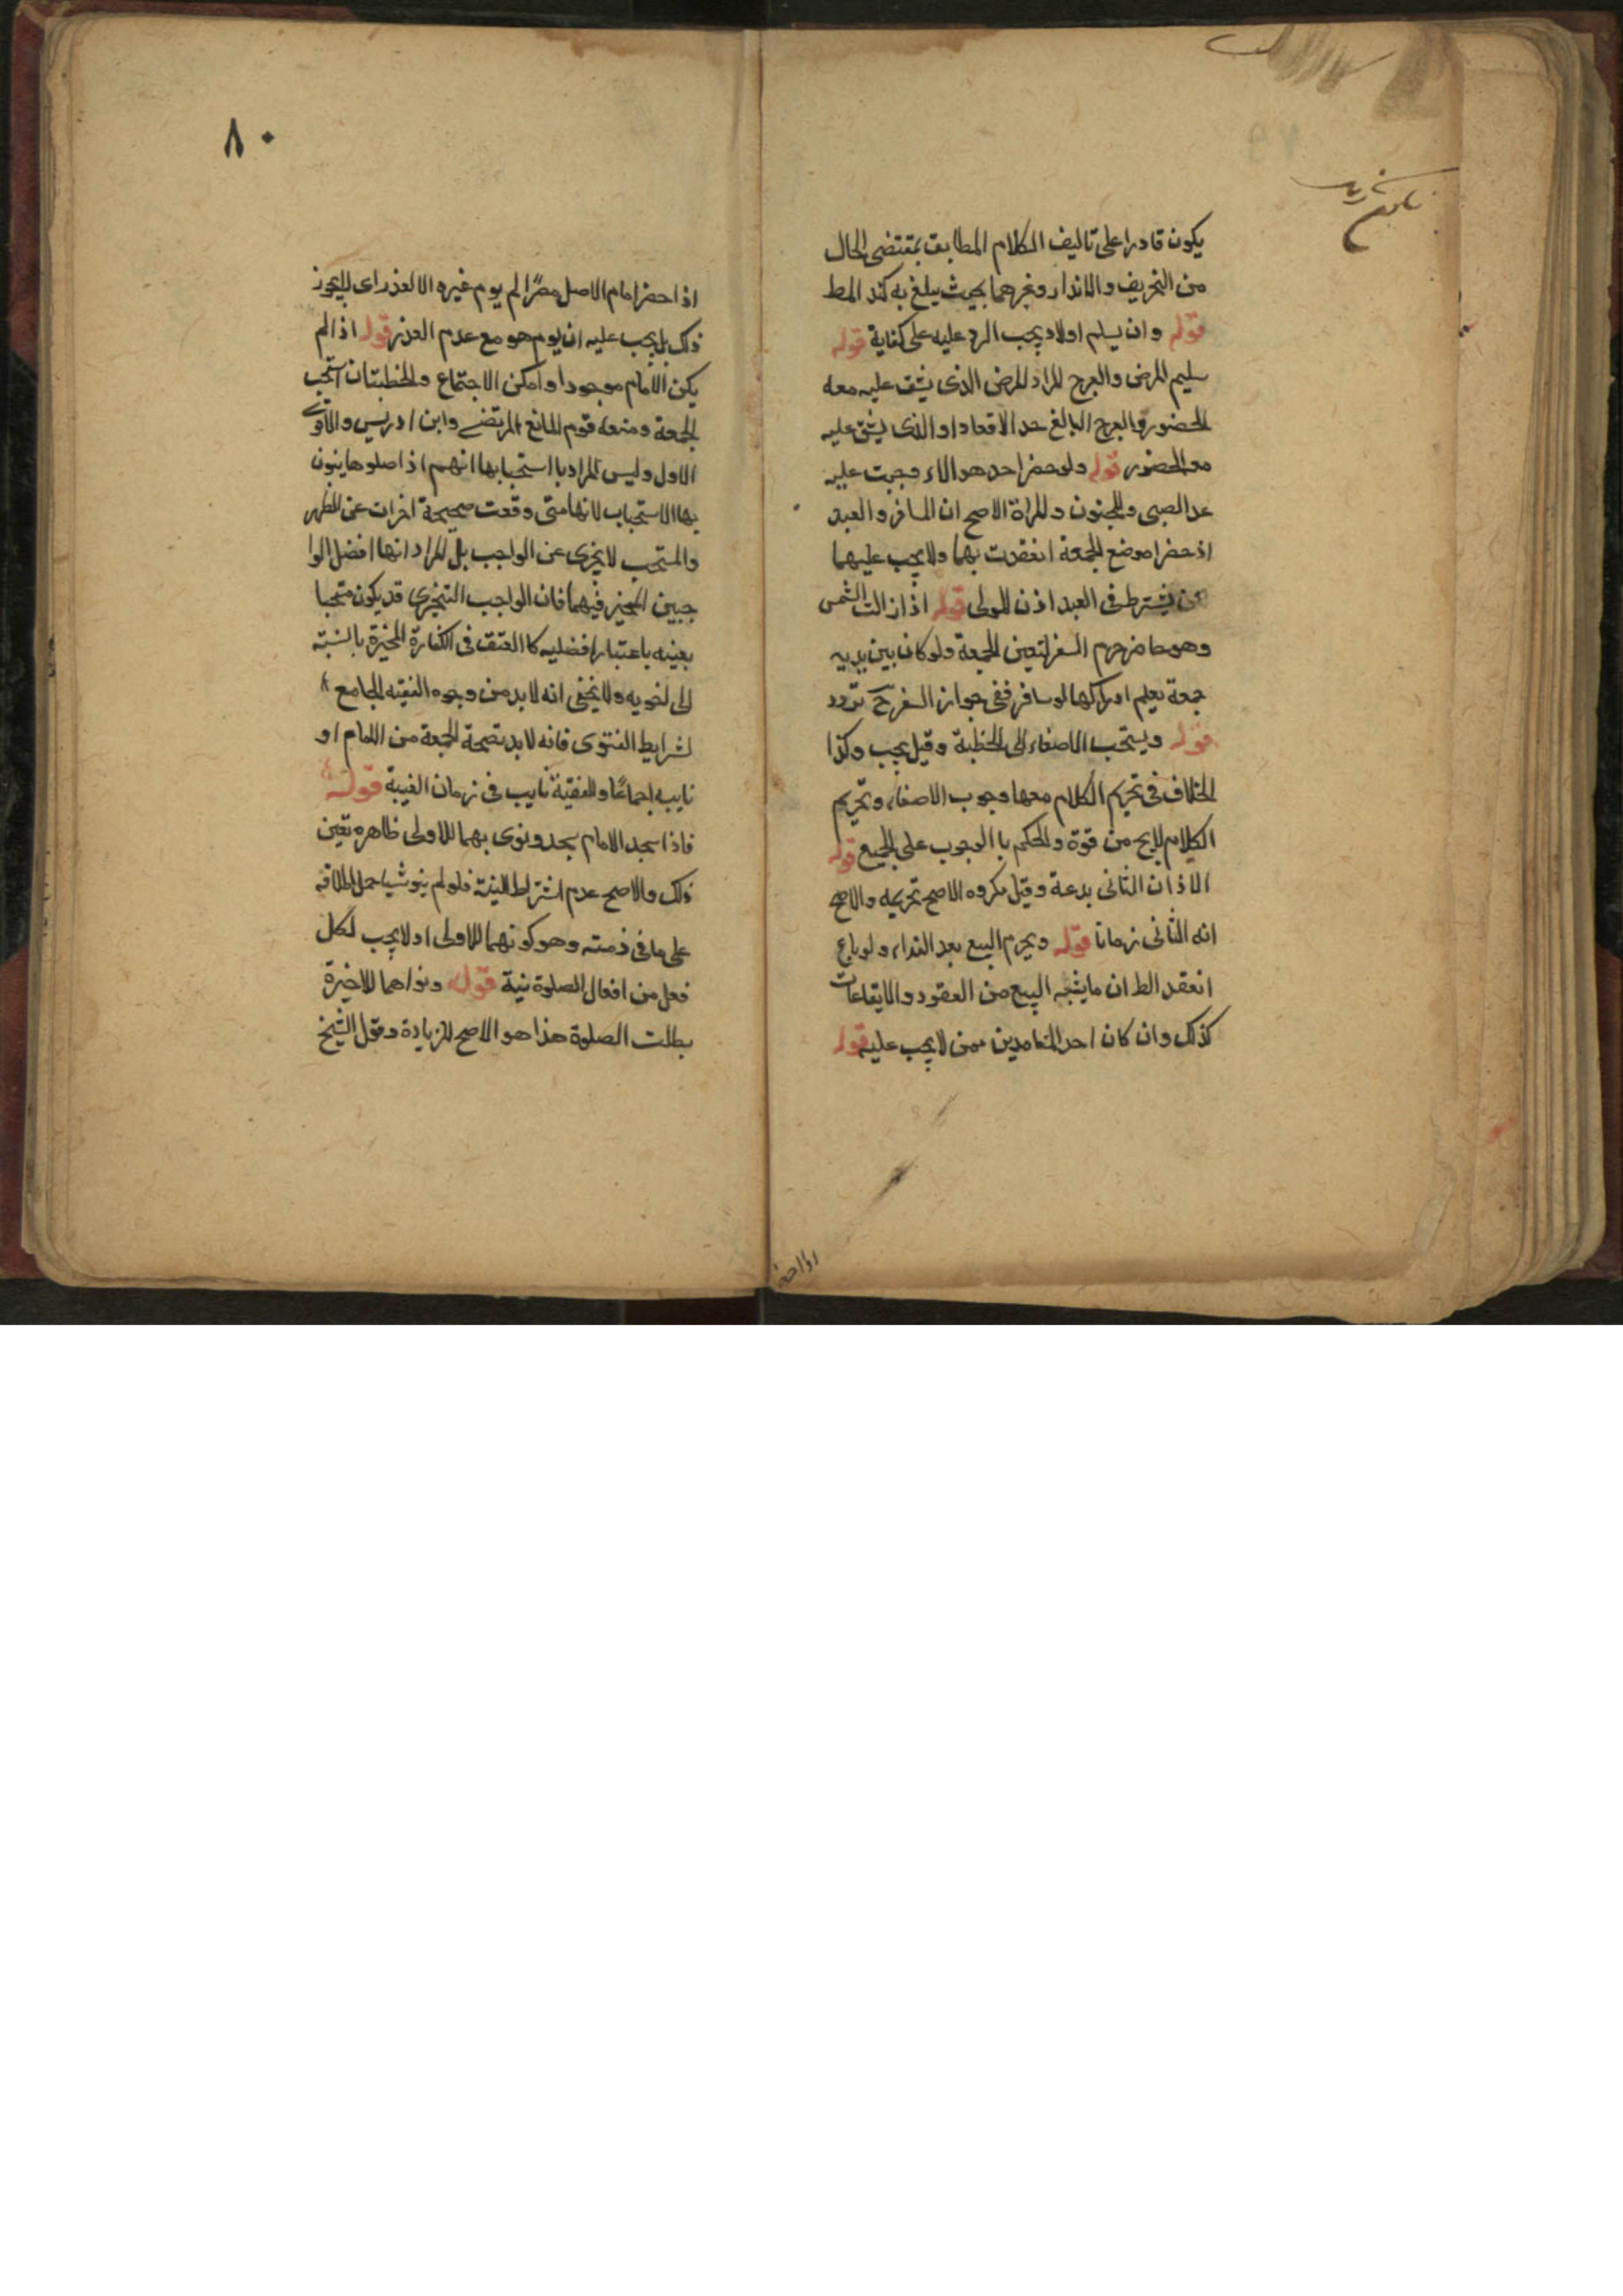 يكون قادرا على تاليف الكلام المطابق بمقتضى الحال
من التخويف والانذار وغيرهما بحيث يبلغ به كنه المط
قوله وان يسلم اولا ويجب الرد عليه على كفاية قوله
سليم المرض والعرج المراد المرض الذى يشق عليه معه
الحضور والعرج البالغ حد الاقعاد او الذى يشق عليه
معه الحضور قوله ولو حضر احد هولاء وجبت عليه
عدا الصبى والمجنون والمراة الاصح ان المسافر والعبد
اذ حضرا موضع الجمعة انعقدت بهما ولا يجب عليهما
يشترط فى العبد اذن المولى قوله اذ ازالت الشمس
وهو حاضر حرم السفر لتعين الجمعة ولو كان بين يديه
جمعة يعلم ادراكها لو سافر ففى جواز السفر ح تردد
قوله ويستحب الاصغاء الى الخطبة وقيل يجب وكذا
الخلاف فى تحريم الكلام معها وجوب الاصغاء وتحريم
الكلام لايخ من قوة والحكم با الوجوب على الجميع قوله
الاذان الثانى بدعة وقيل مكروه الاصح تحريمه والاصح
انه الثانى زمانا قوله ويحرم البيع بعد النداء ولو باع
انعقد الط ان مايشبه البيع من العقود والايقاعات
كذلك وان كان احد المتعاقدين ممن لايجب عليه قوله
اذا حضر
٨٠
اذا حضر امام الاصل مصرًا لم يوم غيره الا لعذر اى لايجوز
ذلك بل يجب عليه ان يوم هو مع عدم العذر قوله اذا لم
يكن الامام موجودا وامكن الاجتماع والخطبتان استحب
الجمعة ومنعه قوم المانع المرتضى وابن ادريس والاقوى
الاول وليس المراد با استحبابها انهم اذا صلوها ينوون
بها الاستحباب لانها متى وقعت صحيحة اجزات عن الظهر
والمستحب لايجزى عن الواجب بل المراد انها افضل الوا
جبين المخير فيهما فان الواجب التخييرى قد يكون مستحبا
بعينه باعتبار افضليه كا العتق فى الكفارة المخيرة بالنسبة
الى اخويه ولا يخفى انه لابد من وجوه الفقيه الجامع
لشرايط الفتوى فانه لابد بصحة الجمعة من الامام او
نايبه اجماعًا والفقيه نايب فى زمان الغيبة قوله
فاذا سجد الامام سجد ونوى بهما للاولى ظاهره تعين
ذلك والاصح عدم اشتراط النية فلو لم ينو شيا حمل اطلاقه
على ما فى ذمته وهو كونهما للاولى اذ لايجب لكل
فعل من افعال الصلوة نية قوله ونواهما للاخيرة
بطلت الصلوة هذا هو الاصح للزيادة وقول الشيخ